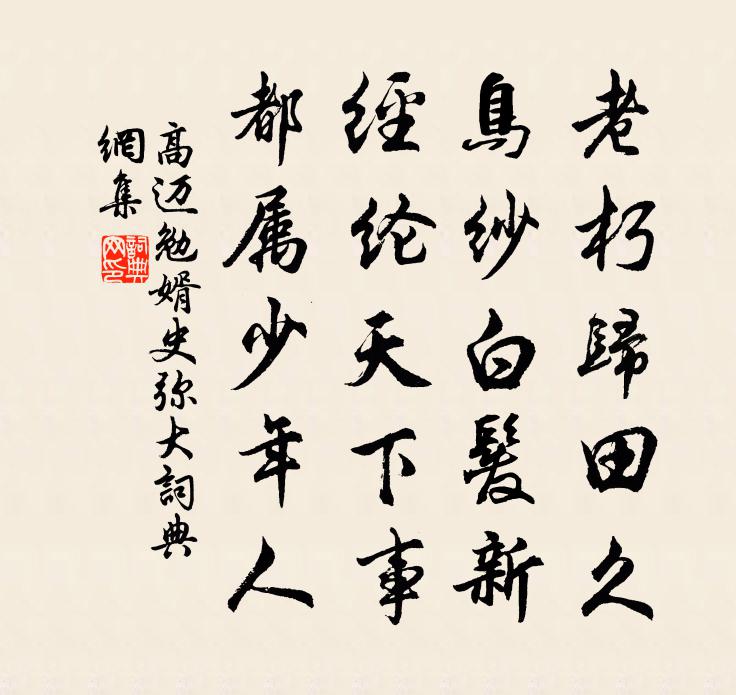 老朽歸田久
烏紗白髮新
經纶天下事
都属少年人
高迈勉婿史弥大詞典
網集
詞典
网印